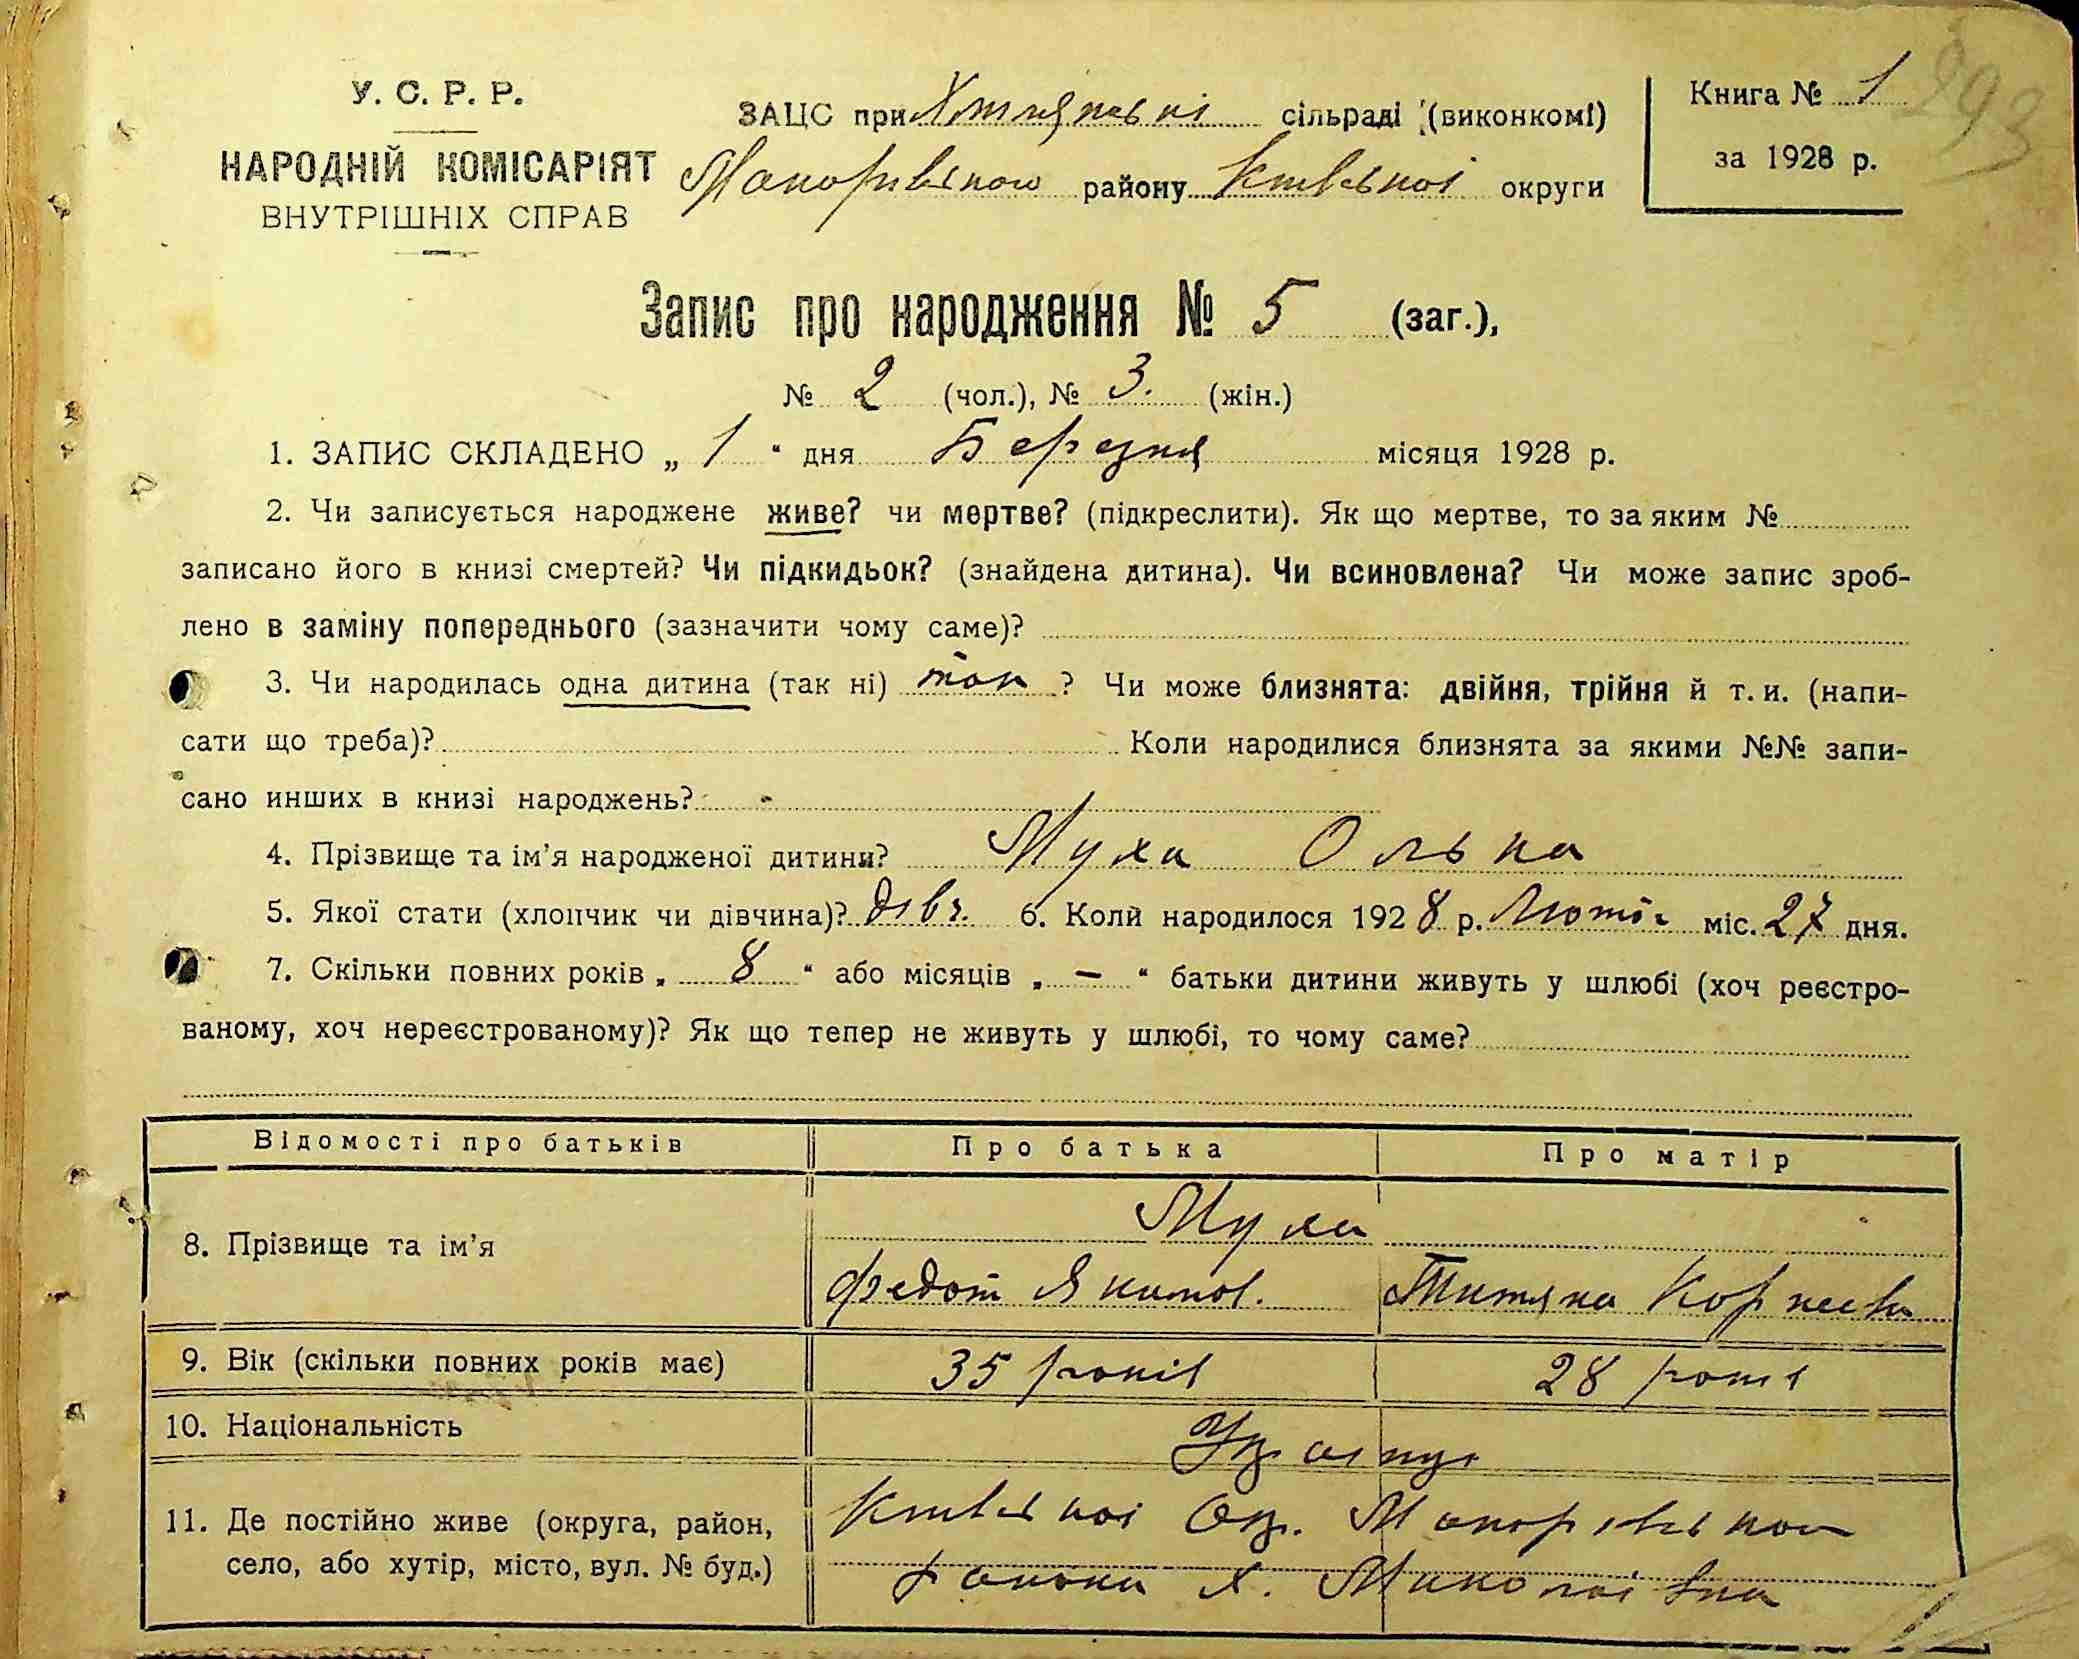 У. С. Р. Р.
НАРОДНІЙ КОМІСАРІЯТ
ВНУТРІШНІХ СПРАВ
ЗАЦС при сільраді (виконкомі)
району Київської округи
Книга № 1
за 1928 р.
293
Запис про народження № 5 (заг.),
№ 2 (чол.), № 3. (жін.)
1. ЗАПИС СКЛАДЕНО „ 1 “ дня Березня місяця 1928 р.
2. Чи записується народжене живе? чи мертве? (підкреслити). Як що мертве, то за яким №
записано його в книзі смертей? Чи підкидьок? (знайдена дитина). Чи всиновлена? Чи може запис зроб-
лено в заміну попереднього (зазначити чому саме)?
3. Чи народилась одна дитина (так ні) так ? Чи може близнята: двійня, трійня й т. и. (напи-
сати що треба)? Коли народилися близнята за якими №№ запи-
сано инших в книзі народжень? -
4. Прізвище та ім'я народженої дитини? Муха Ольга
5. Якої стати (хлопчик чи дівчина)? дівч. 6. Коли народилося 1928 р. міс. 27 дня.
7. Скільки повних років „ 8 “ або місяців „ — “ батьки дитини живуть у шлюбі (хоч реєстро-
ваному, хоч нереєстрованому)? Як що тепер не живуть у шлюбі, то чому саме?
Відомості про батьків Про батька Про матір
8. Прізвище та ім'я Муха
Федот Якимов. Титяна
9. Вік (скільки повних років має) 35 років 28 років
10. Національність
11. Де постійно живе (округа, район, Київської Окр. Макарівського
село, або хутір, місто, вул. № буд.) района х. Миколаївка